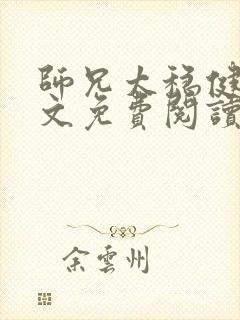 師兄太穩健
文免費閱讀
余雲州